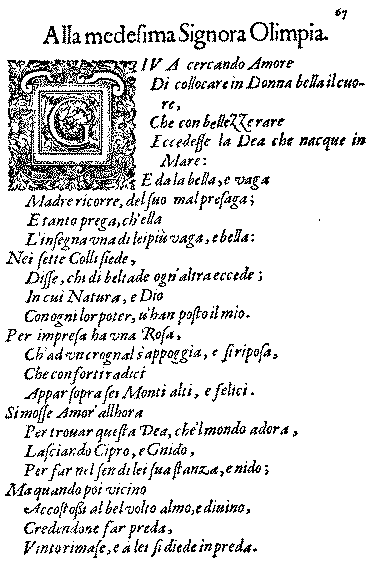 67
Alla medesima Signora Olimpia.
GIVA cercando Amore
Di collocare in Donna bella il cuo-
re,
Che con bellezze rare
Eccedesse la Dea che nacque in
Mare:
E da la bella, e vaga
Madre ricorre, del suo mal presaga;
E tanto prega, ch'ella
L'insegna vna di lei più vaga, e bella:
Nei sette Colli siede,
Disse, chi di beltade ogn'altra eccede;
In cui Natura, e Dio
Con ogni lor poter, v'han posto il mio.
Per impresa ha vna Rosa,
Ch'ad vn crognal s'appoggia, e si riposa,
Che con forti radici
Appar sopra sei Monti alti, e felici.
Si mosse Amor' allhora
Per trouar questa Dea, che'l mondo adora,
Lasciando Cipro, e Gnido,
Per far nel sen di lei sua stanza, e nido;
Ma quando poi vicino
Accostossi al bel volto almo, e diuino,
Credendone far preda,
Vinto rimase, e a lei si diede in preda.